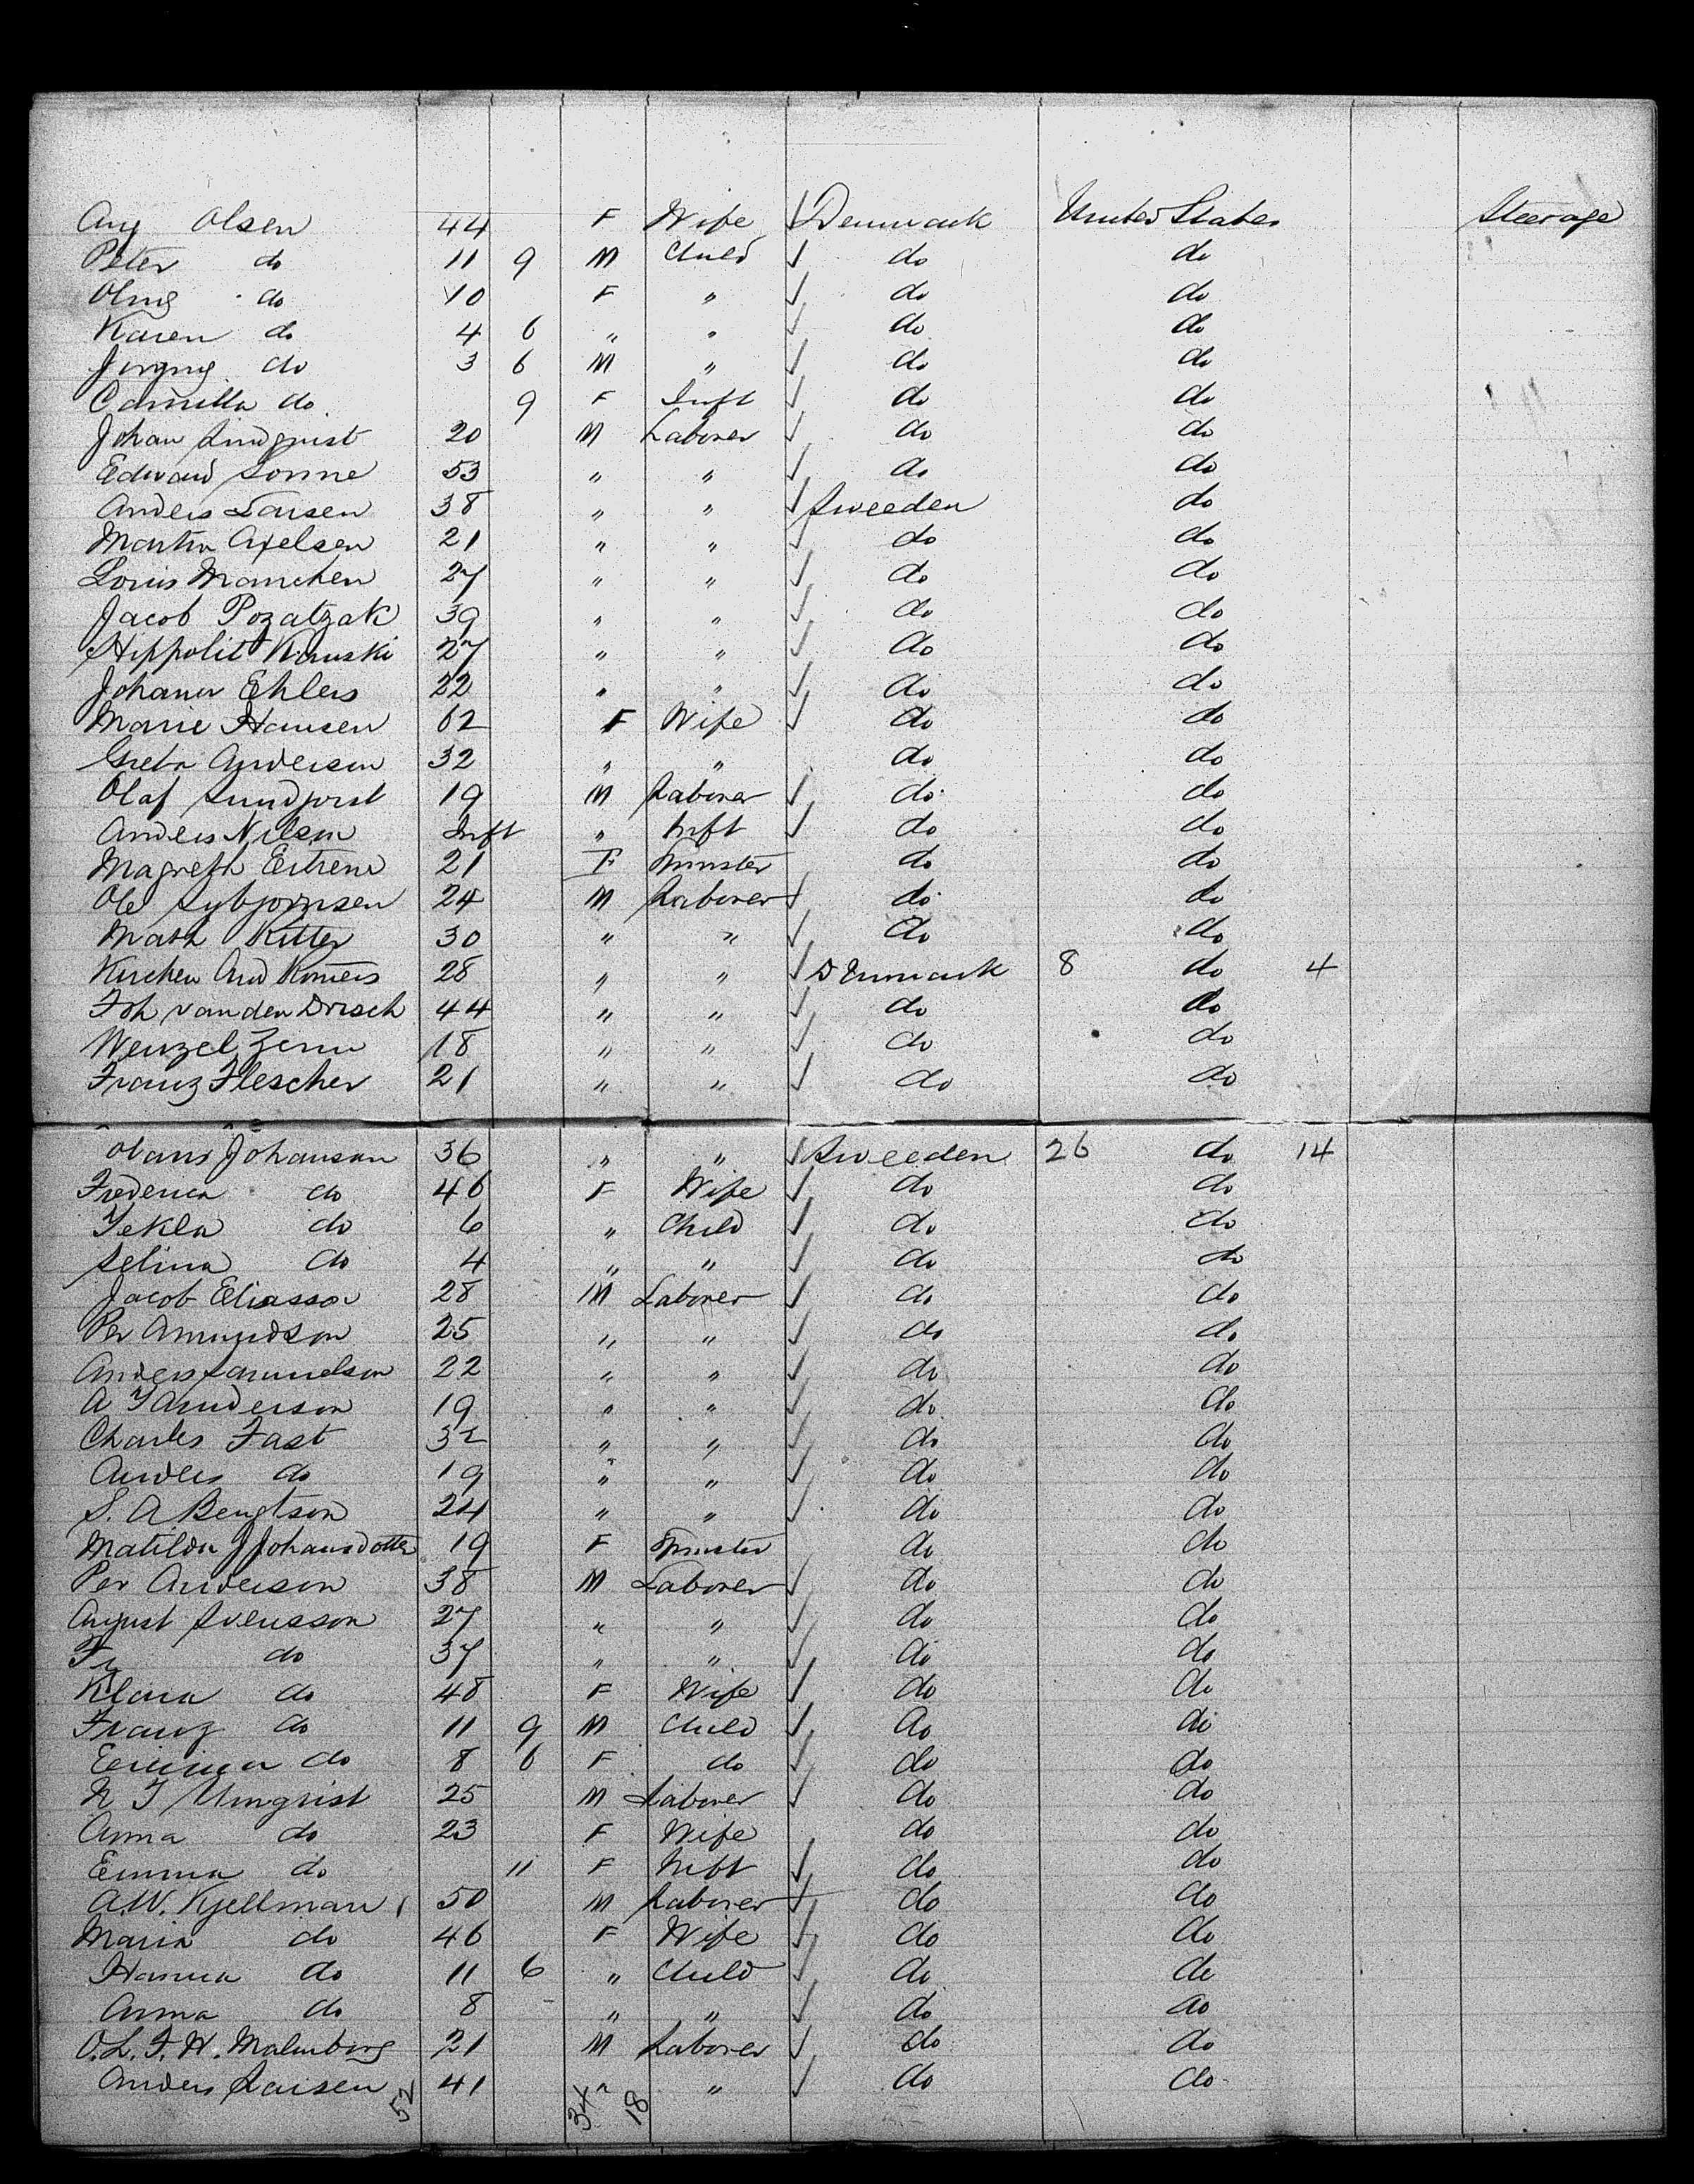 Ang Olsen 44 F Wife ✓ Denmark United States Steerage
Peter do 11 9 M Child ✓ do do
Oling do 10 F " ✓ do do
Karen do 4 6 " " ✓ do do
Jirgng do 3 6 M " ✓ do do
Camilla do 9 F Inft ✓ do do
Johan Lindquist 20 M Laborer ✓ do do
Edward Sonne 53 " " ✓ do do
Anders Larsen 38 " " ✓ Sweeden do
Martin Axelsen 21 " " ✓ do do
Louis Manchen 27 " " ✓ do do
Jacob Pozatzak 39 " " ✓ do do
Hippolit Kinski 27 " " ✓ do do
Johann Ehlers 22 " " ✓ do do
Marie Hansen 62 F Wife ✓ do do
Greta Anderson 32 " " do do
Olaf Lundqvist 19 M Laborer ✓ do do
Anders Nilson Inft " Inft ✓ do do
Magreth Eitrem 21 F Spinster do do
Ole Sybjornsen 24 M Laborer ✓ do do
Math Ritter 30 " " ✓ do do
Kirchen And Romers 28 " " ✓ Denmark 8 do 4
Joh van den Driesch 44 " " ✓ do do
Wenzel Zenn 18 " " ✓ do do
Franz Flescher 21 " " ✓ do do
Hans Johanson 36 " " ✓ Sweeden 26 do 14
Frederica do 46 F Wife ✓ do do
Tekla do 6 " Child ✓ do do
Selina do 4 " " ✓ do do
Jacob Eliasson 28 M Laborer ✓ do do
Per Amundson 25 " " ✓ do do
Anders Samuelson 22 " " ✓ do do
A T Anderson 19 " " ✓ do do
Charles Fast 32 " " ✓ do do
Anders do 19 " " ✓ do do
S. A Bengtson 24 " " ✓ do do
Matilda J Johansdotter 19 F Spinster do do
Per Anderson 38 M Laborer ✓ do do
August Svensson 27 " " ✓ do do
Fr do 37 " " ✓ do do
Klara do 48 F Wife ✓ do do
Franz do 11 9 M Child ✓ do do
do 8 6 F do ✓ do do
N J Almqvist 25 M Laborer ✓ do do
Anna do 23 F Wife do do
Emma do 11 F Inft ✓ do do
A.W. Kjellman 50 M Laborer ✓ do do
Maria do 46 F Wife ✓ do do
Hanna do 11 6 " Child ✓ do do
Anna do 8 - " " ✓ do do
O.L.F.W. Malmborg 21 M Laborer ✓ do do
Anders Larsen 41 " " ✓ do do
52 34 18